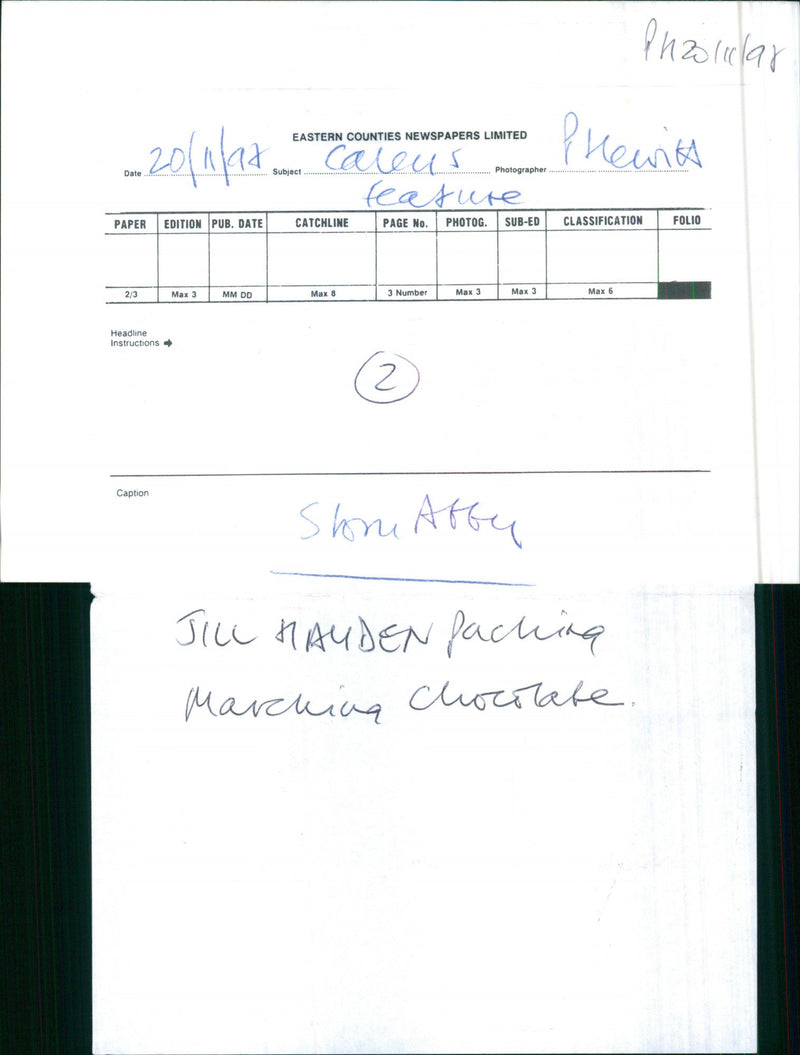 PH20/11/97
EASTERN COUNTIES NEWSPAPERS LIMITED
Date 20/11/97 Subject Caleys Photographer P Hewitt
feature
PAPER EDITION PUB. DATE CATCHLINE PAGE No. PHOTOG. SUB-ED CLASSIFICATION FOLIO
2/3 Max 3 MM DD Max 8 3 Number Max 3 Max 3 Max 6
Headline
Instructions
2
Caption
Story
JILL HAYDEN Packing
Marching Chocolate.